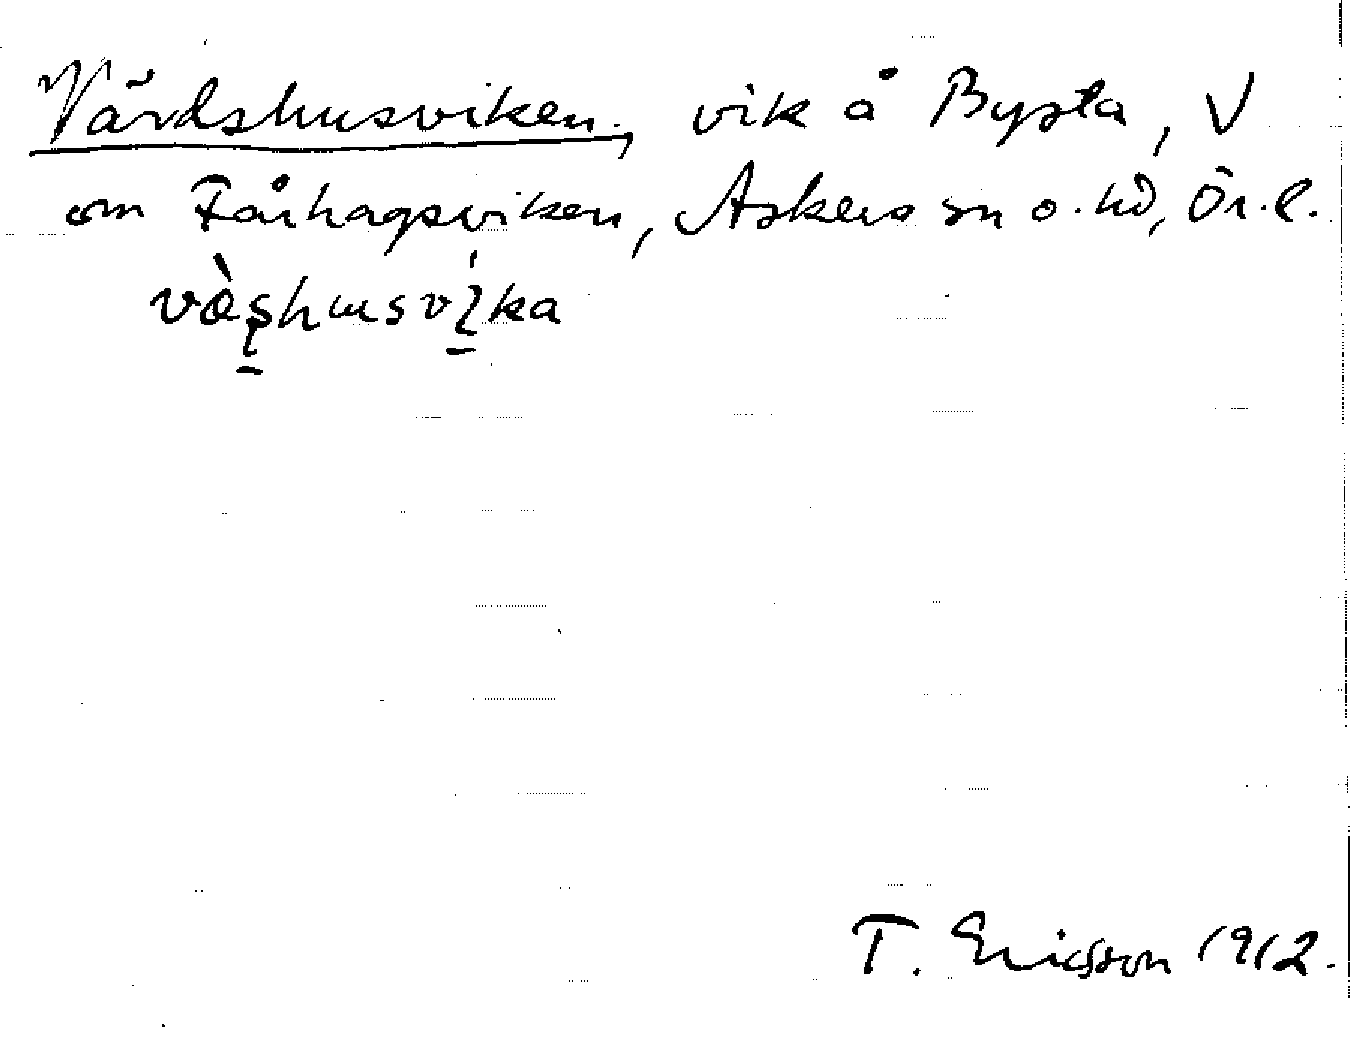 Värdshusviken, vik å Bysta, V
om Fårhagsviken, Askers sn o. hd, Ör. l.
vàs̠husvi̠ka
T. Ericsson 1912.